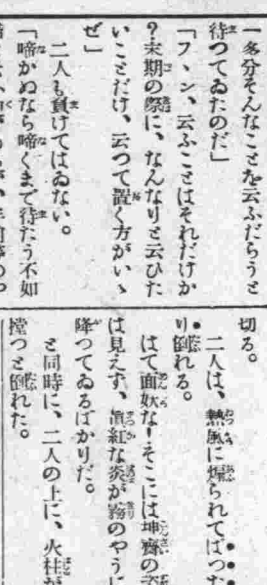 「多分そんなことを云ふだらうと
待つてゐたのだ」
「フ、ン、云ふことはそれだけか
？末期の際に、なんなりと云ひた
いことだけ、云つて置く方がいゝ
ぜ」
二人も負けてはゐない。
「啼かぬなら啼くまで待たう不如
切る。
二人は、熱風に煽られてばつた
り倒れる。
はて面妖な！そこには坤齋の姿
は見えず、眞紅な炎が霧のやうに
降つてゐるばかりだ。
と同時に、二人の上に、火柱が
撞つと倒れた。